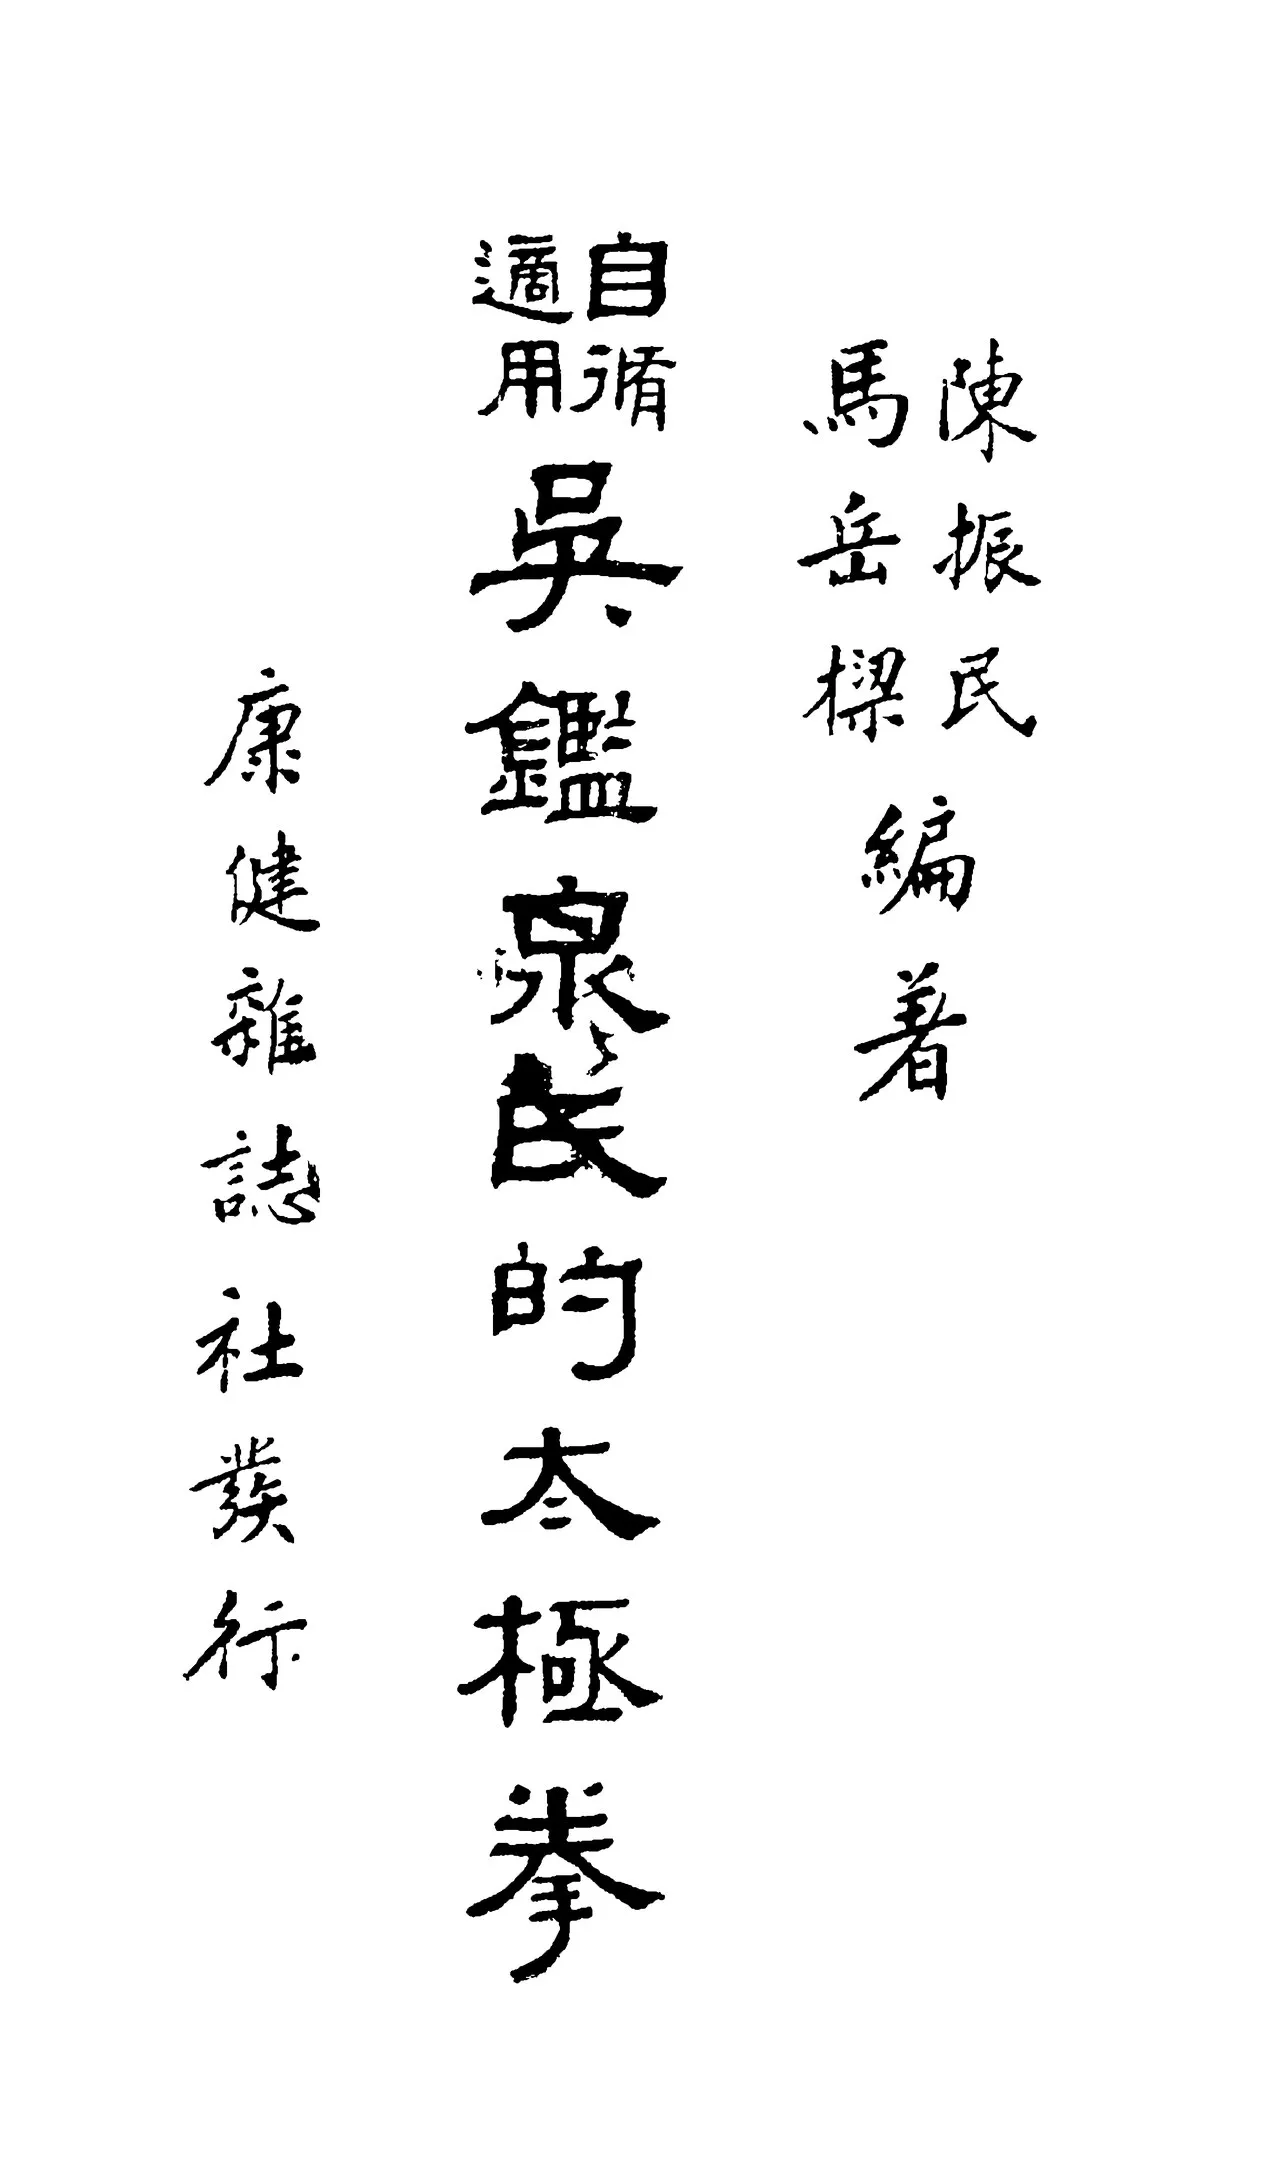 陳振民
馬岳樑
編著
自循
適用
吳鑑泉氏的太極拳
康健雜誌社發行